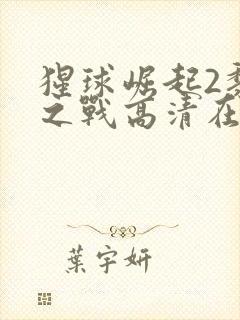 猩球崛起2
之戰高清在
葉宇妍